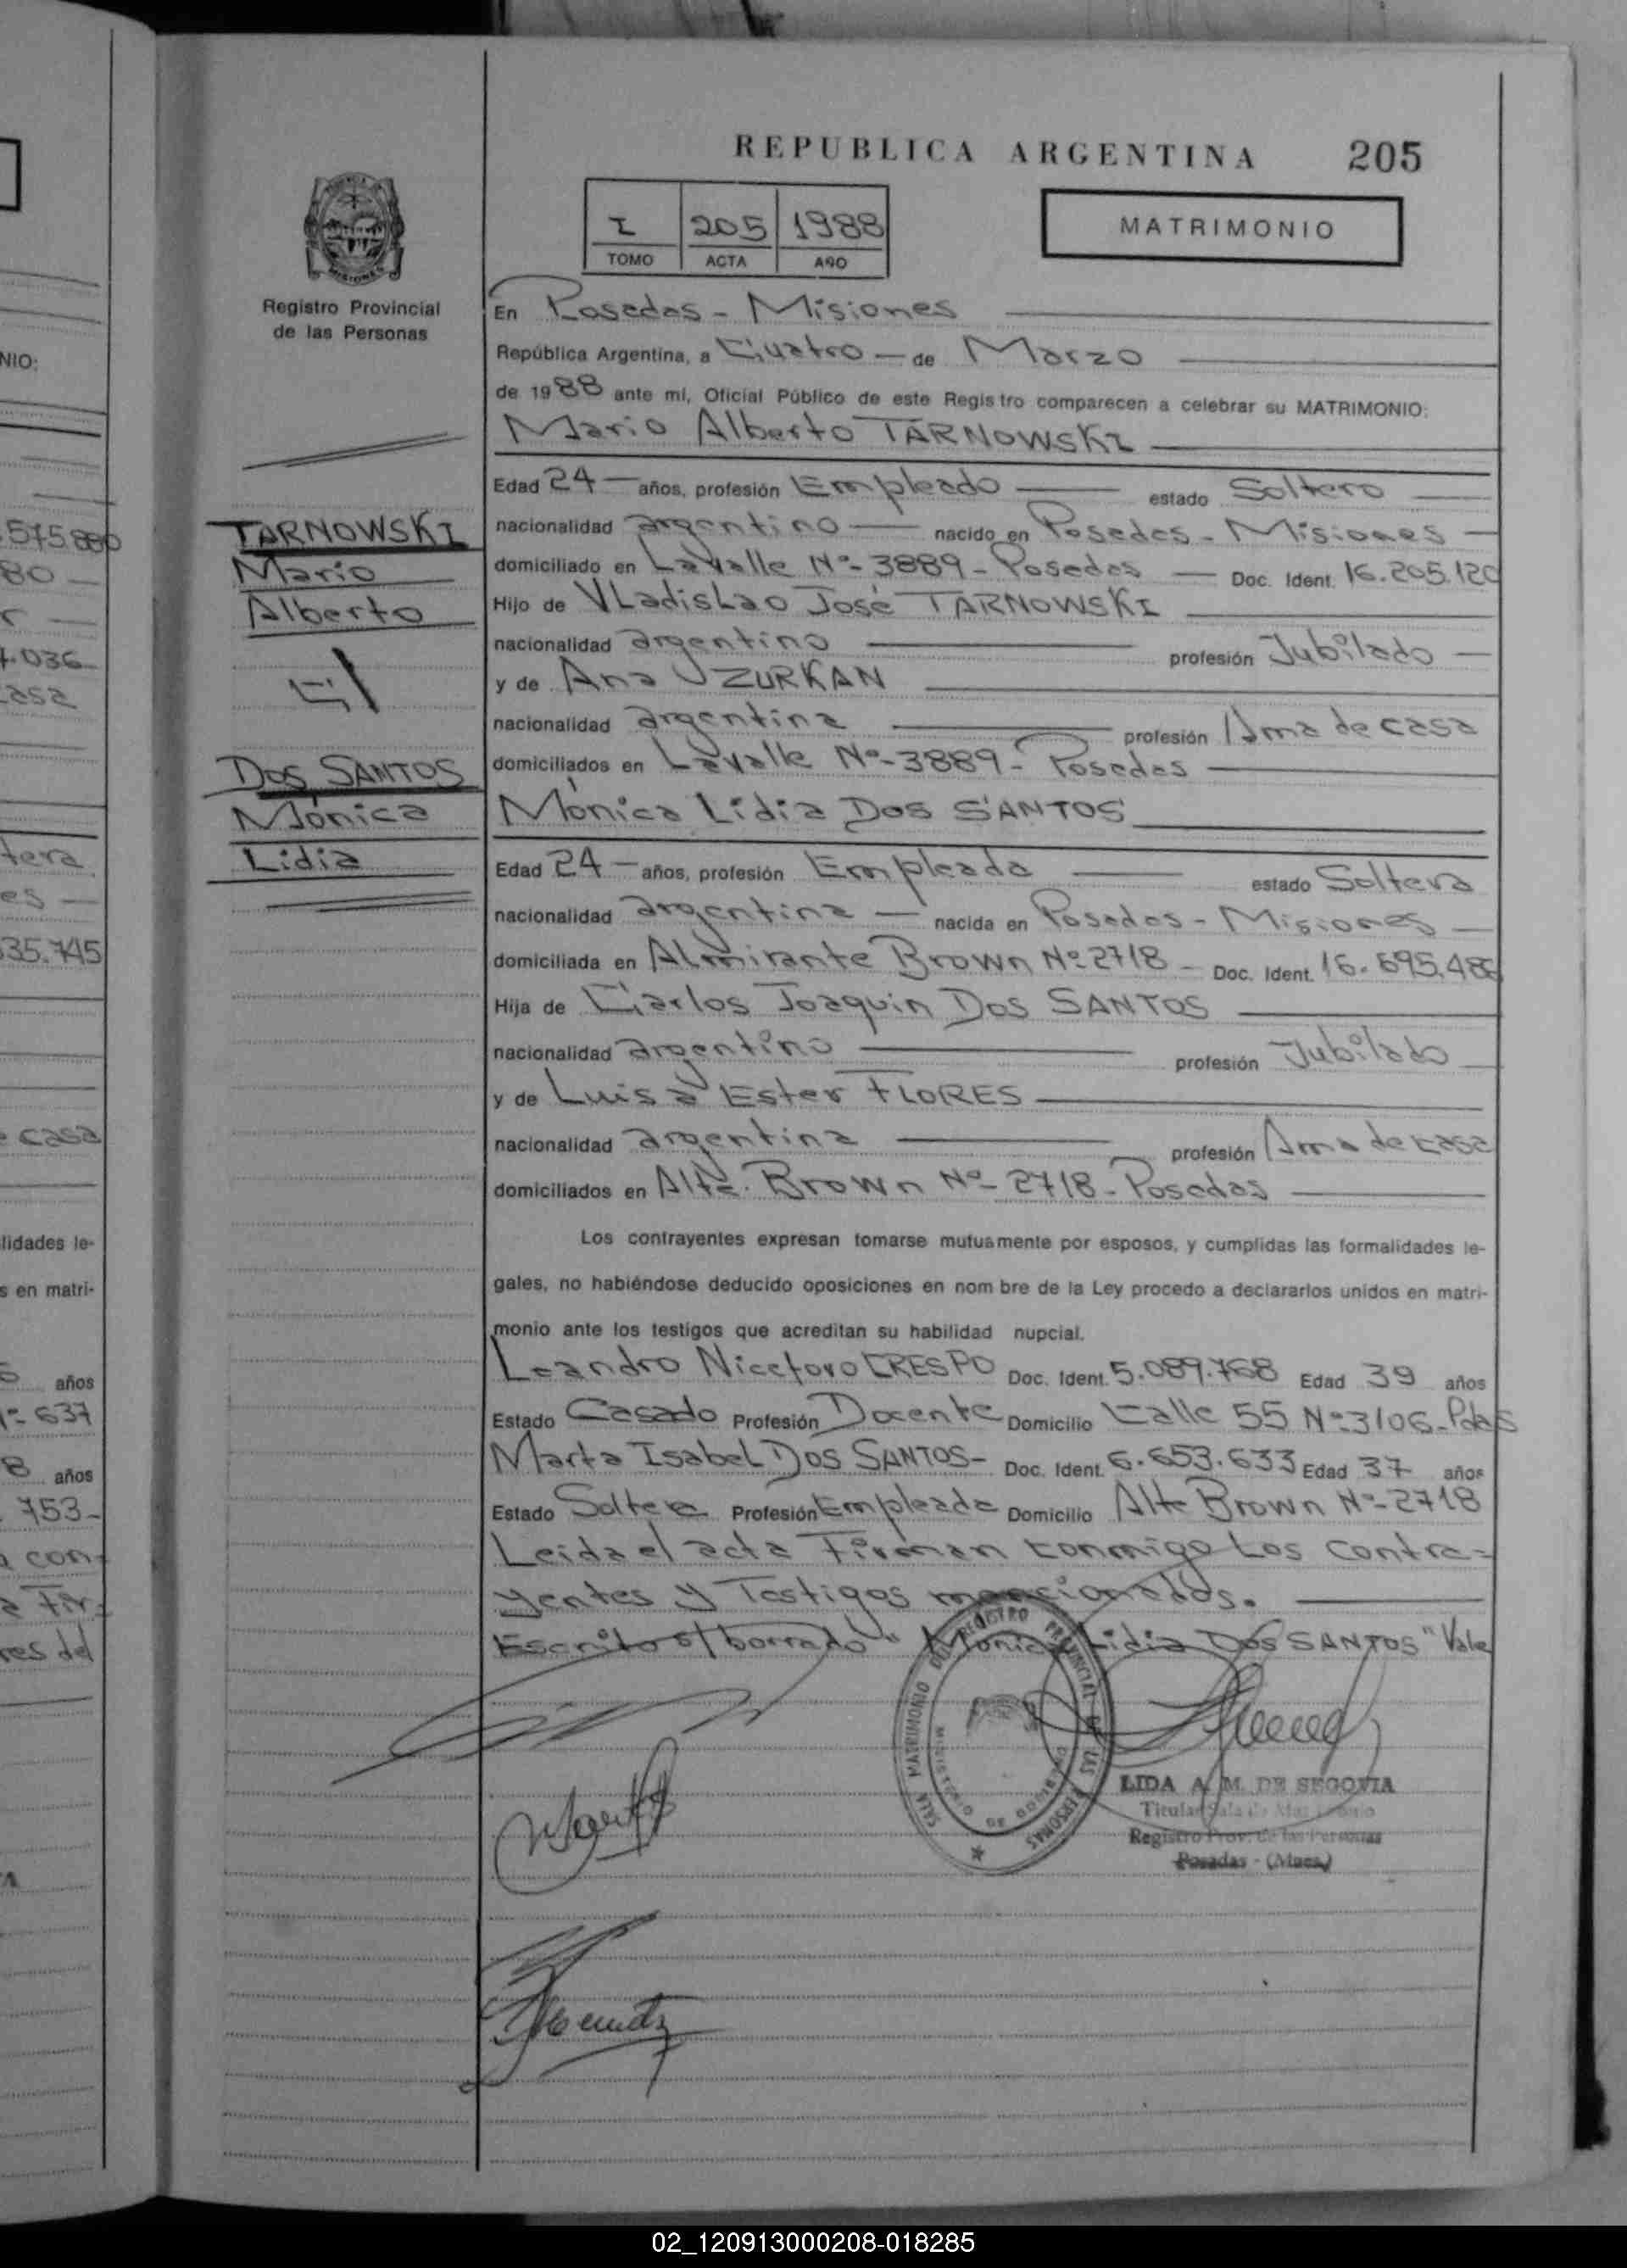 REPUBLICA ARGENTINA 205
I 205 1988
TOMO ACTA AÑO
MATRIMONIO
Registro Provincial
de las Personas
En Posadas - Misiones
República Argentina, a Cuatro - de Marzo
de 1988 ante mí, Oficial Público de este Registro comparecen a celebrar su MATRIMONIO:
Mario Alberto TARNOWSKI
Edad 24 - años, profesión Empleado estado Soltero
nacionalidad argentino nacido en Posadas - Misiones
domiciliado en Lavalle Nº- 3889 - Posadas - Doc. Ident. 16.205.120
Hijo de VLadisLao José TARNOWSKI
nacionalidad argentino profesión Jubilado
y de Ana UZURKAN
nacionalidad argentina profesión Ama de casa
domiciliados en Lavalle Nº- 3889 - Posadas
Mónica Lidia Dos SANTOS
Edad 24 - años, profesión Empleada estado Soltera
nacionalidad argentina nacida en Posadas - Misiones
domiciliada en Almirante Brown Nº 2718 - Doc. Ident. 16.695.486
Hija de Carlos Joaquin Dos SANTOS
nacionalidad argentino profesión Jubilado
y de Luisa Ester FLORES
nacionalidad argentina profesión Ama de casa
domiciliados en Alte. Brown Nº- 2718 - Posadas
Los contrayentes expresan tomarse mutuamente por esposos, y cumplidas las formalidades le-
gales, no habiéndose deducido oposiciones en nombre de la Ley procedo a declararlos unidos en matri-
monio ante los testigos que acreditan su habilidad nupcial.
Leandro Niceforo CRESPO Doc. Ident. 5.089.768 Edad 39 años
Estado Casado Profesión Docente Domicilio Calle 55 Nº 3106 - Pdas
Marta Isabel Dos SANTOS - Doc. Ident. 6.653.633 Edad 37 años
Estado Soltera Profesión Empleada Domicilio Alte Brown Nº- 2718
Leida el acta Firman conmigo Los contra=
yentes y Testigos mencionados.
Escrito s/borrado "Monica Lidia Dos SANTOS" Vale
TARNOWSKI
Mario
Alberto
c/
DOS SANTOS
Mónica
Lidia
SALA MATRIMONIO DEL REGISTRO PROVINCIAL DE LAS PERSONAS
MINISTERIO DE GOBIERNO
LIDA A. M. DE SEGOVIA
Titular Sala de Matrimonio
Registro Prov. de las Personas
Posadas - (Mnes.)
575.880
80
4.036
casa
NIO:
tera
es
35.745
casa
lidades le-
s en matri-
años
Nº 637
8 años
753-
con-
Fir-
res del
02_120913000208-018285